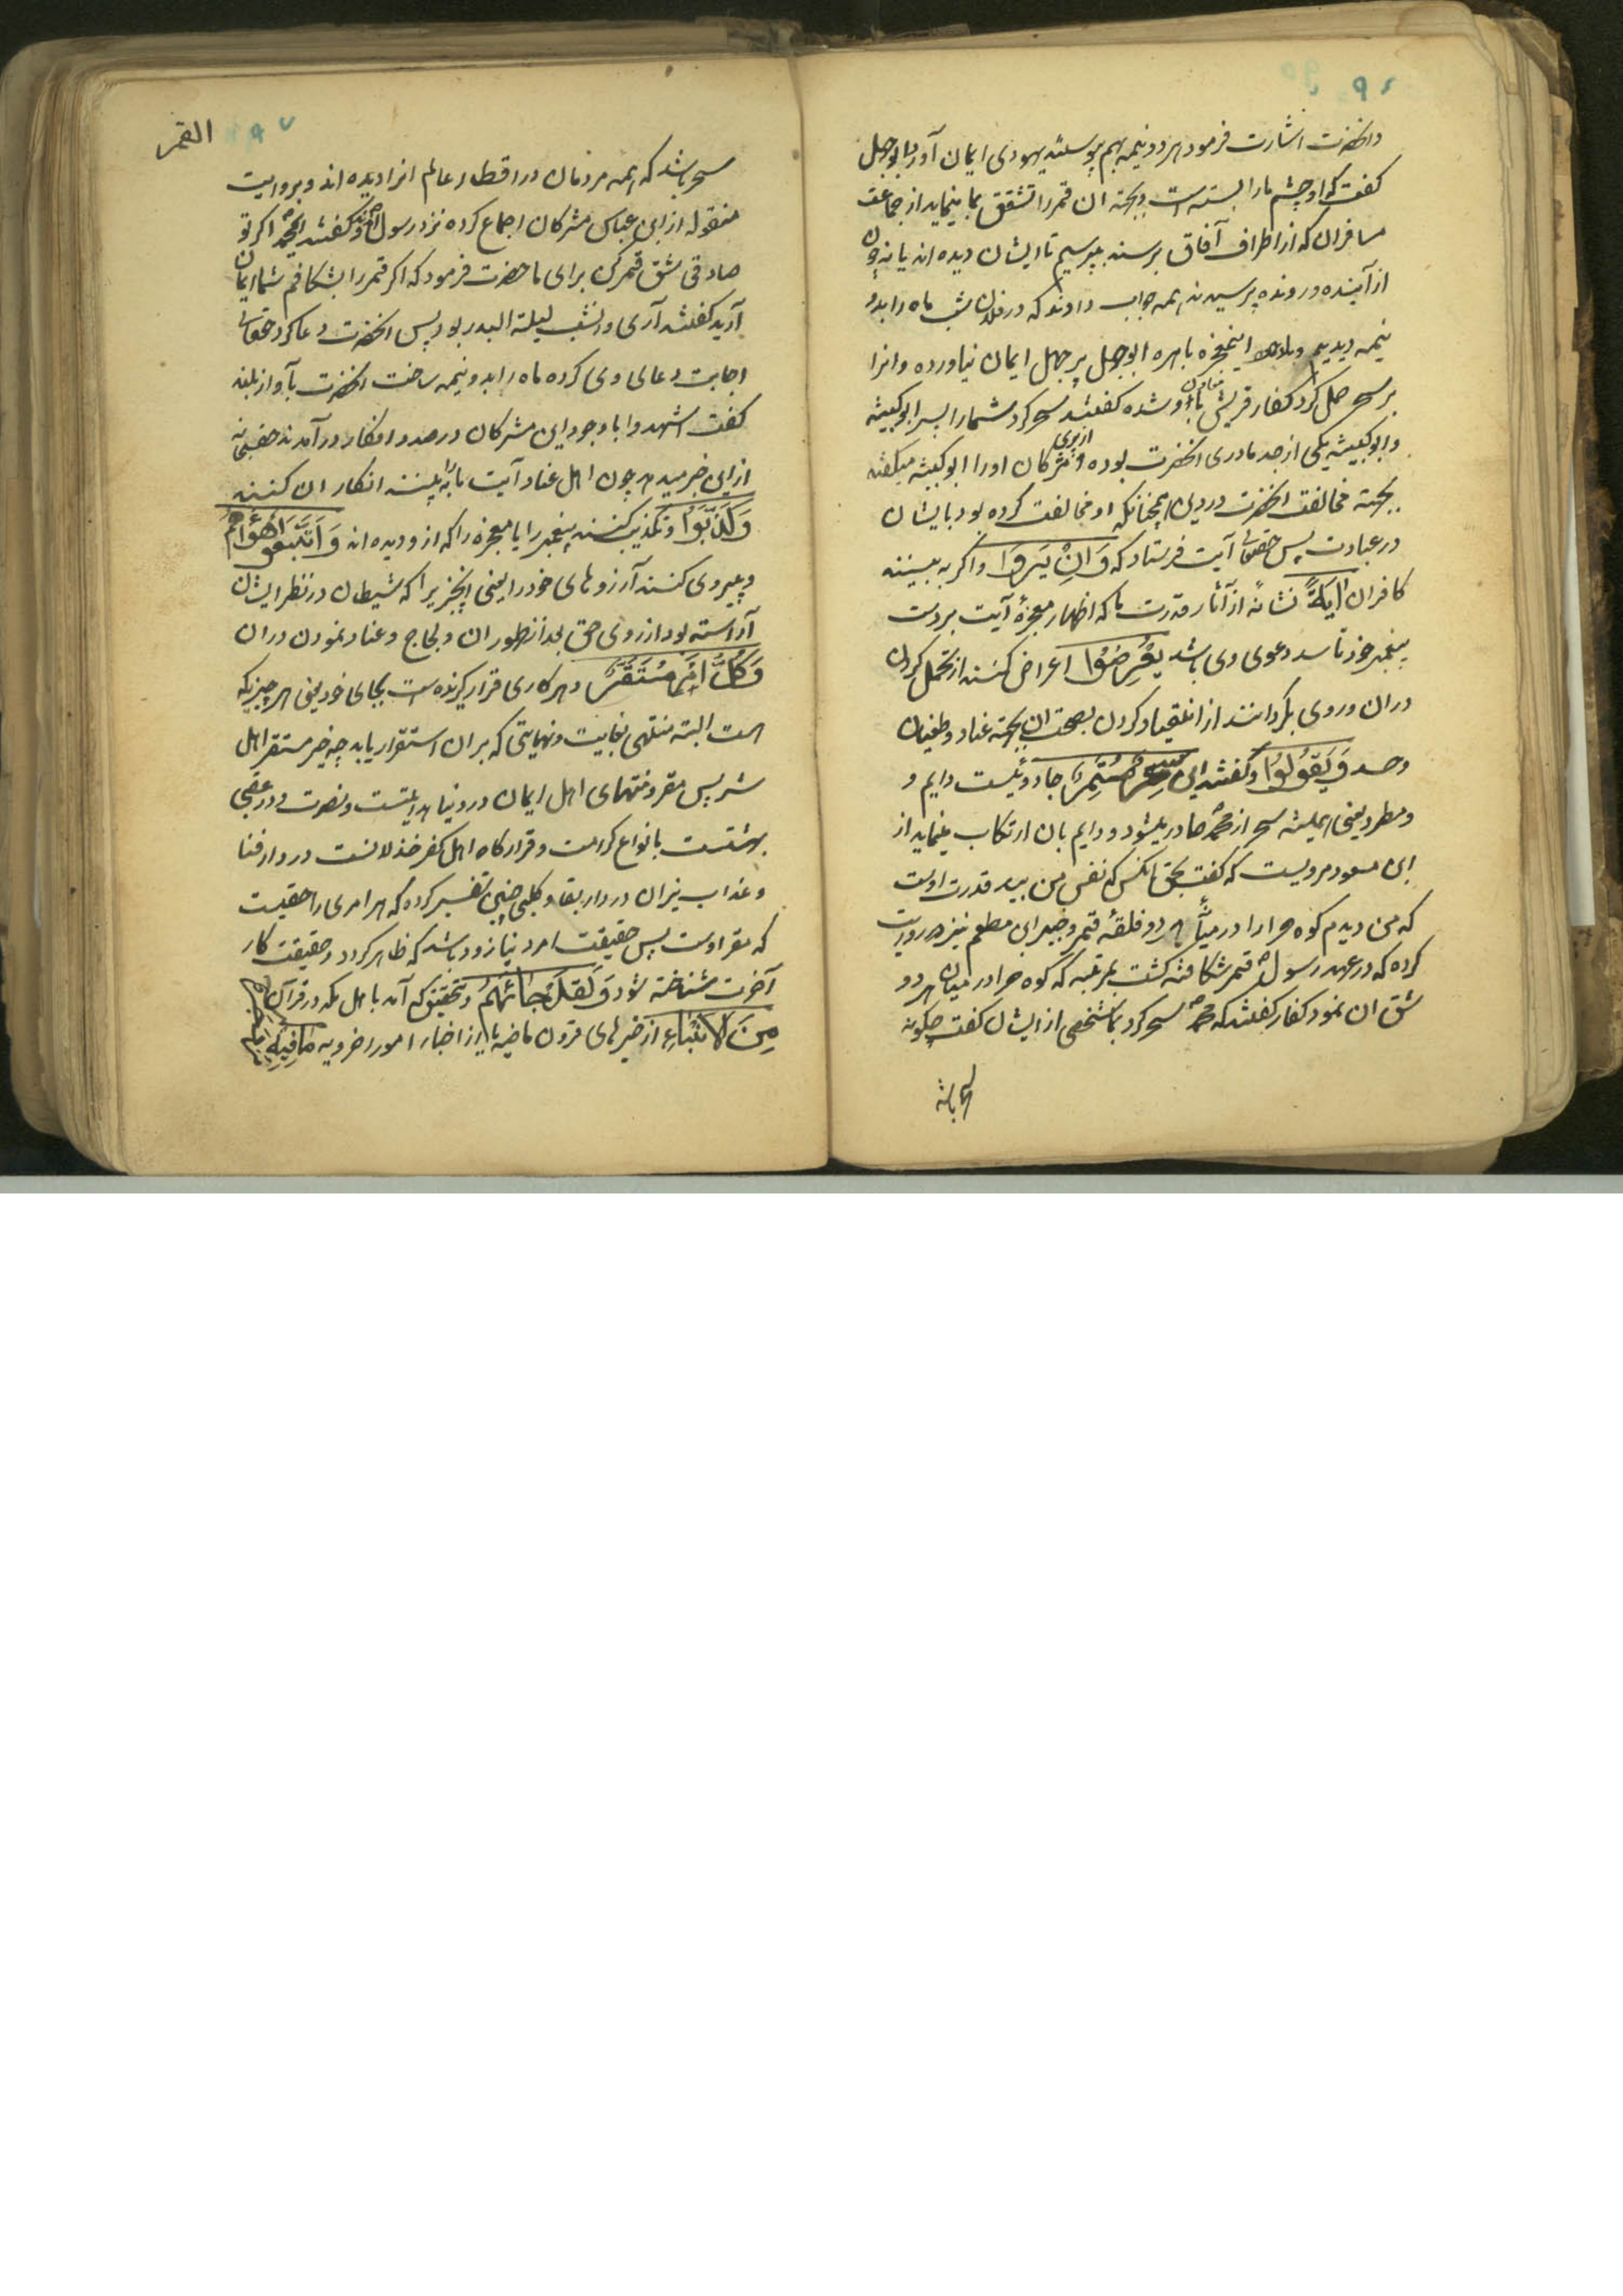 و انحضرت اشارت فرمود هر دو نیمه بهم پیوستند یهودی ایمان آورد ابوجهل
کفت که او چشم ما را بسته است و بجهة ان قمر را منشق بما مینماید از جماعت
مسافران که از اطراف آفاق برسند بپرسیم تا ایشان دیده اند یا نه چون
از آینده و رونده پرسیدند همه جواب دادند که در فلان شب ماه را بدو
نیمه دیدیم با وجود اینمعجزه باهره ابوجهل پر جهل ایمان نیاورده و انرا
بر سحر حمل کرد کفار قریش شده کفتند سحر کرد شما را پسر ابو کبشه
و ابو کبشه یکی از جد مادری انحضرت بوده و مشرکان او را ابو کبشه میکفتند
بجهة مخالفت انحضرت در دین همچنانکه او مخالفت کرده بود با ایشان
در عبادت پس حقتعالی آیت فرستاد که وَاِنْ یَرَوْا و اکر به بینند
کافران اٰیَةً نشانهٔ از آثار قدرت ما که اظهار معجزهٔ آیت بر دست
پیغمبر خود تا سند دعوی وی باشد یُعْرِضُوا اعراض کنند از تحمل کردن
در ان و روی بکردانند از انقیاد کردن بصحت ان بجهة عناد و طغیان
و حسد وَ یَقُولُوا و کفتند این سِحْرٌ مُسْتَمِرٌّ جادوئیست دایم و
و مطرد یعنی همیشه سحر از محمد صادر میشود و دایم بان ارتکاب مینماید از
ابن مسعود مرویست که کفت بحق انکس که نفس من بید قدرت اوست
که من دیدم کوه حرا را در میان هر دو فلقهٔ قمر و جبیر ابن مطعم نیز روایت
کرده که در عهد رسول ص قمر شکافته کشت بمرتبه که کوه حرا در میان هر دو
شق ان نمود کفار کفتند که محمد ص سحر کرد بما شخصی از ایشان کفت چکونه
القمر
سحر باشد که همه مردمان در اقطار عالم انرا دیده اند و بروایت
منقوله از ابن عباس مشرکان اجماع کرده نزد رسول آمدند و کفتند ای محمد اکر تو
صادقی شق قمر کن برای ما حضرت فرمود که اکر قمر را بشکافم شما ایمان
آرید کفتند آری و انشب لیلة البدر بود پس انحضرت دعا کرد حقتعالی
اجابت دعای وی کرده ماه را بدو نیمه ساخت انحضرت بآواز بلند
کفت اشهدوا با وجود این مشرکان در صدد انکار در آمدند حقتعالی
از این خبر میدهد چون اهل عناد آیت ما را به بینند انکار ان کنند
وَ کَذَّبُوا و تکذیب کنند پیغمبر را یا معجزه را که از و دیده اند وَ اتَّبَعُوا اَهْوٰاءَهُمْ
و پیروی کنند آرزوهای خود را یعنی انچیزیرا که شیطان در نظر ایشان
آراسته بود از روی حق بعد از ظهور ان و لجاج و عناد نمودن در ان
وَ کُلُّ اَمْرٍ مُسْتَقِرٌّ و هر کاری قرار کیرنده است بجای خود یعنی هر چیزیکه
هست البته منتهی بغایت و نهایتی که بر ان استقرار یابد چه خیر مستقر اهل
شر پس مقر و منتهای اهل ایمان در دنیا هدایتست و نصرت و در عقبی
بهشتست بانواع کرامت و قرارکاه اهل کفر خذلانست در دار فنا
و عذاب نیران در دار بقا و کلبی چنین تفسیر کرده که هر امری را حقیقت
که مقر اوست پس حقیقت امر دنیا زود باشد که ظاهر کردد و حقیقت کار
آخرت شناخته شود وَ لَقَدْ جٰائَهُمْ و بتحقیق که آمد باهل مکه در قرآن
مِنَ الْاَنْبٰاءِ از خبرهای قرون ماضیه یا از اخبار امور اخرویه مٰا فِیهِ